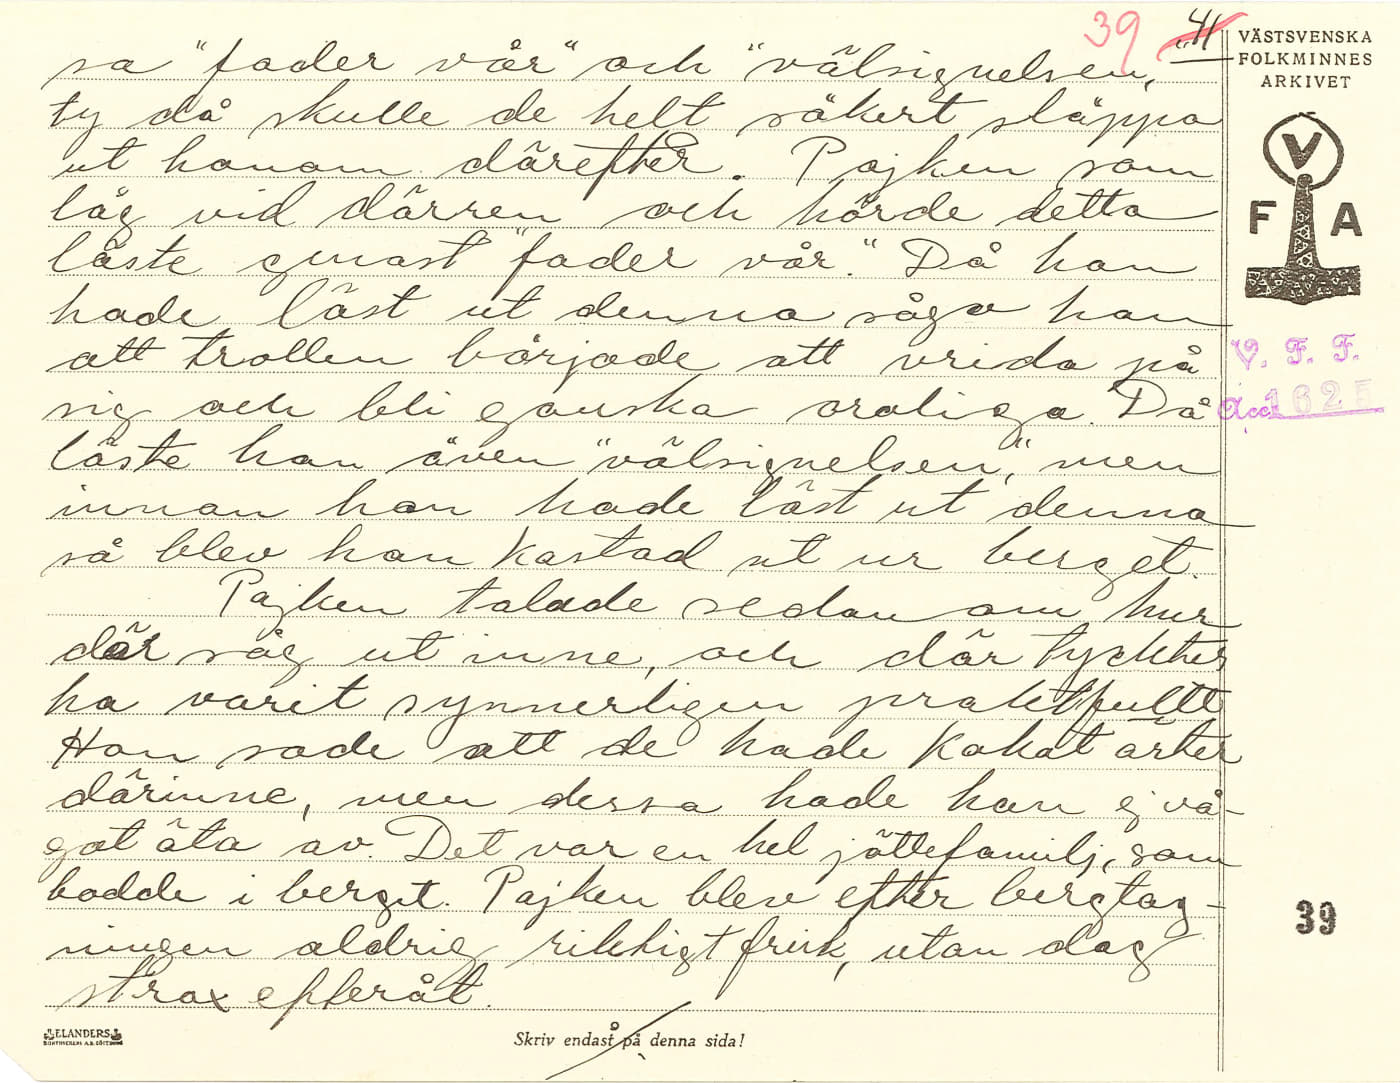 39 41
VÄSTSVENSKA
FOLKMINNES
ARKIVET
V
F A
V. F. F.
Acc. 1625
sa "fader vår" och "välsignelsen,
ty då skulle de helt säkert släppa
ut honom därefter. Pojken som
låg vid dörren och hörde detta
läste genast "fader vår." Då han
hade läst ut denna såg han
att trollen började att vrida på
sig och bli ganska oroliga. Då
läste han även "välsignelsen", men
innan han hade läst ut denna
så blev han kastad ut ur berget.
Pojken talade sedan om hur
där såg ut inne, och där tycktes
ha varit synnerligen praktfullt
Han sade att de hade kokat ärter
därinne, men dessa hade han ej vå-
gat äta av. Det var en hel jättefamilj, som
bodde i berget. Pojken blev efter bergtag-
ningen aldrig riktigt frisk, utan dog
strax efteråt.
39
ELANDERS
Skriv endast på denna sida!